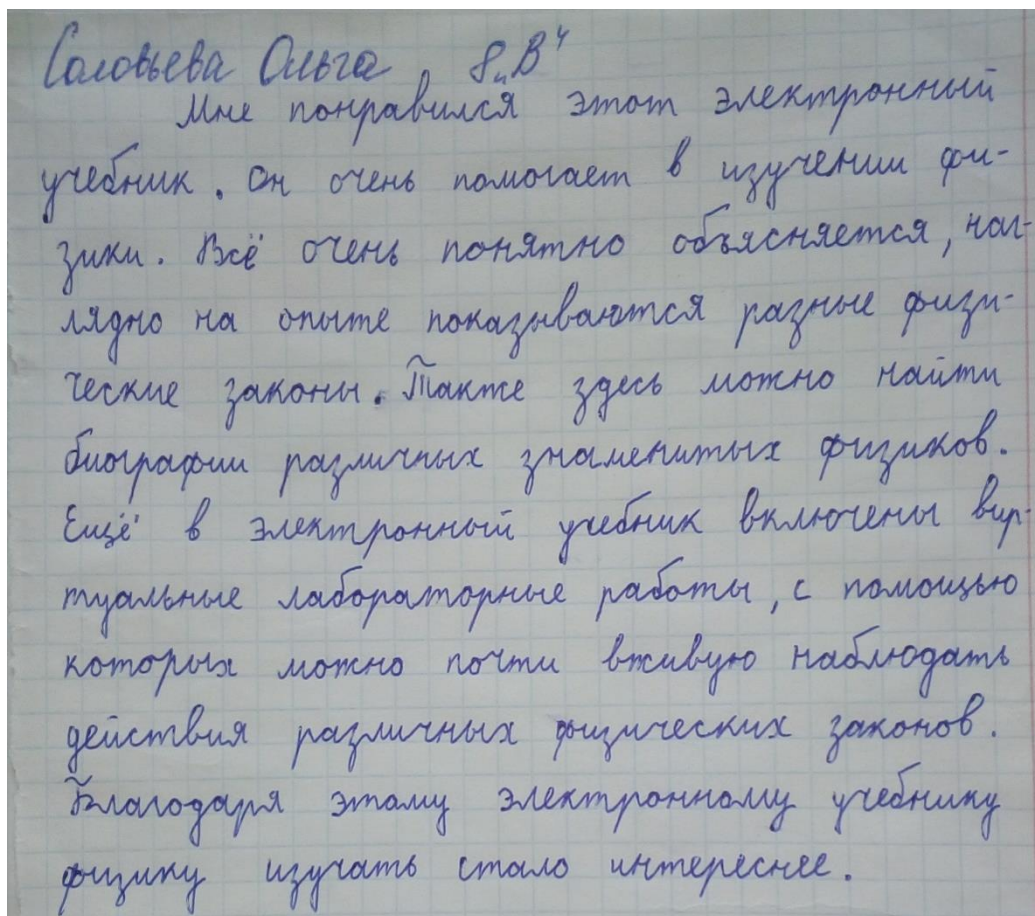 Соловьева Ольга, 8„В“
Мне понравился этот электронный
учебник. Он очень помогает в изучении фи-
зики. Всё очень понятно объясняется, наг-
лядно на опыте показываются разные физи-
ческие законы. Также здесь можно найти
биографии различных знаменитых физиков.
Ещё в электронный учебник включены вир-
туальные лабораторные работы, с помощью
которых можно почти вживую наблюдать
действия различных физических законов.
Благодаря этому электронному учебнику
физику изучать стало интереснее.